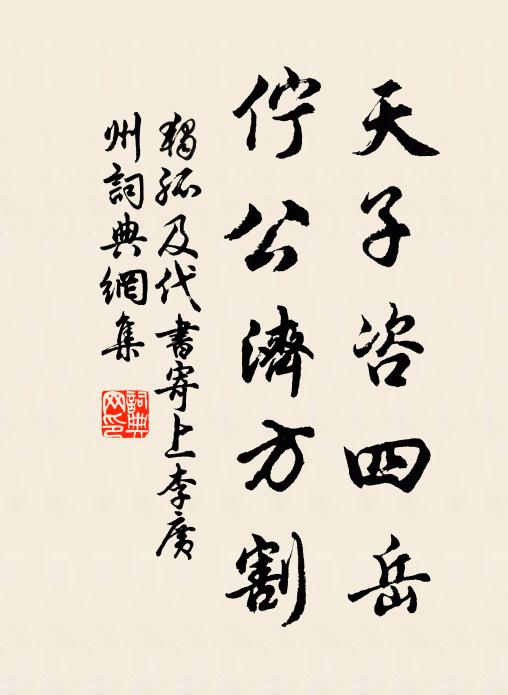 天子咨四岳
佇公濟方割
獨孤及代書寄上李廣
州詞典網集
詞典网印